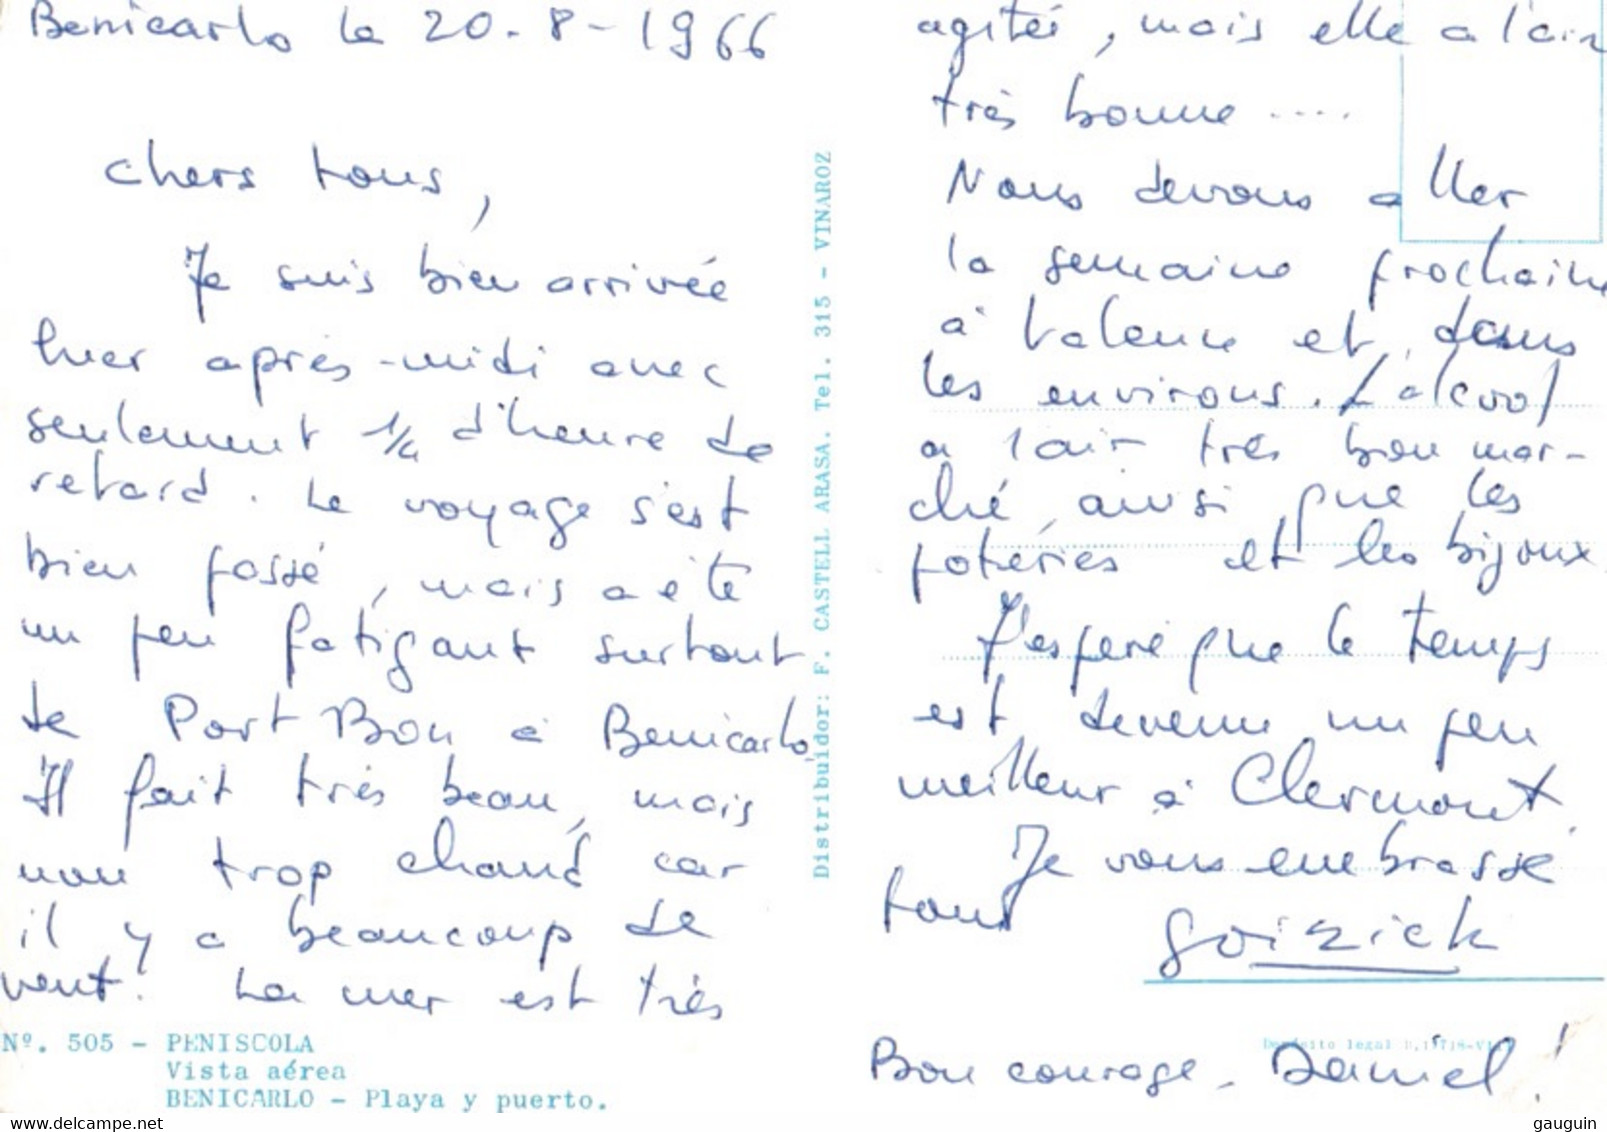 Benicarlo le 20-8-1966
Chers tous,
Je suis bien arrivée
hier après-midi avec
seulement 1/4 d'heure de
retard. Le voyage s'est
bien passé, mais a été
un peu fatigant surtout
de Port Bou à Benicarlo.
Il fait très beau, mais
non trop chaud car
il y a beaucoup de
vent! La mer est très
agitée, mais elle a l'air
très bonne ....
Nous devons aller
la semaine prochaine
à Valence et dans
les environs. L'alcool
a l'air très bon mar-
ché, ainsi que les
poteries et les bijoux
J'espère que le temps
est devenu un peu
meilleur à Clermont.
Je vous embrasse
tous
Goizick
Bon courage - Daniel!
Distribuidor: F. CASTELL ARASA. Tel. 315 - VINAROZ
Nº. 505 - PENISCOLA
Vista aérea
BENICARLO - Playa y puerto.
Depósito legal
gauguin